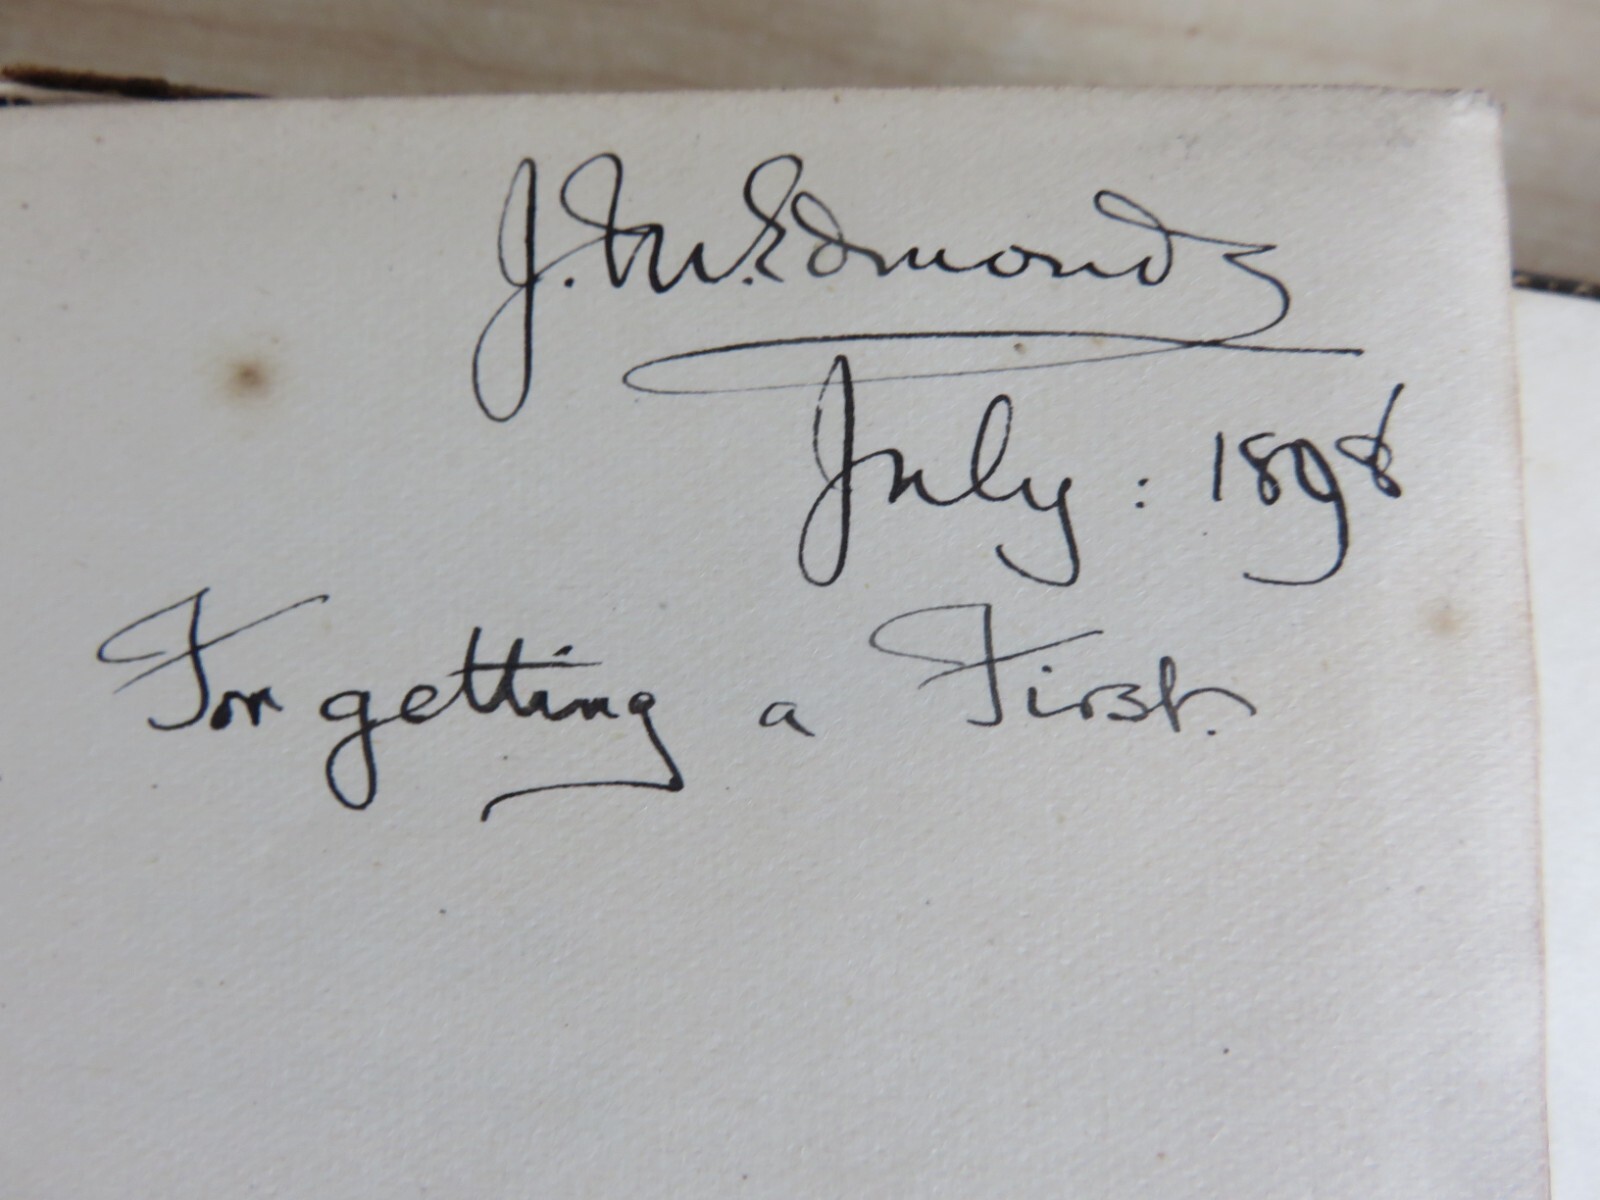 J. M. Edmonds
July : 1898
For getting a First.